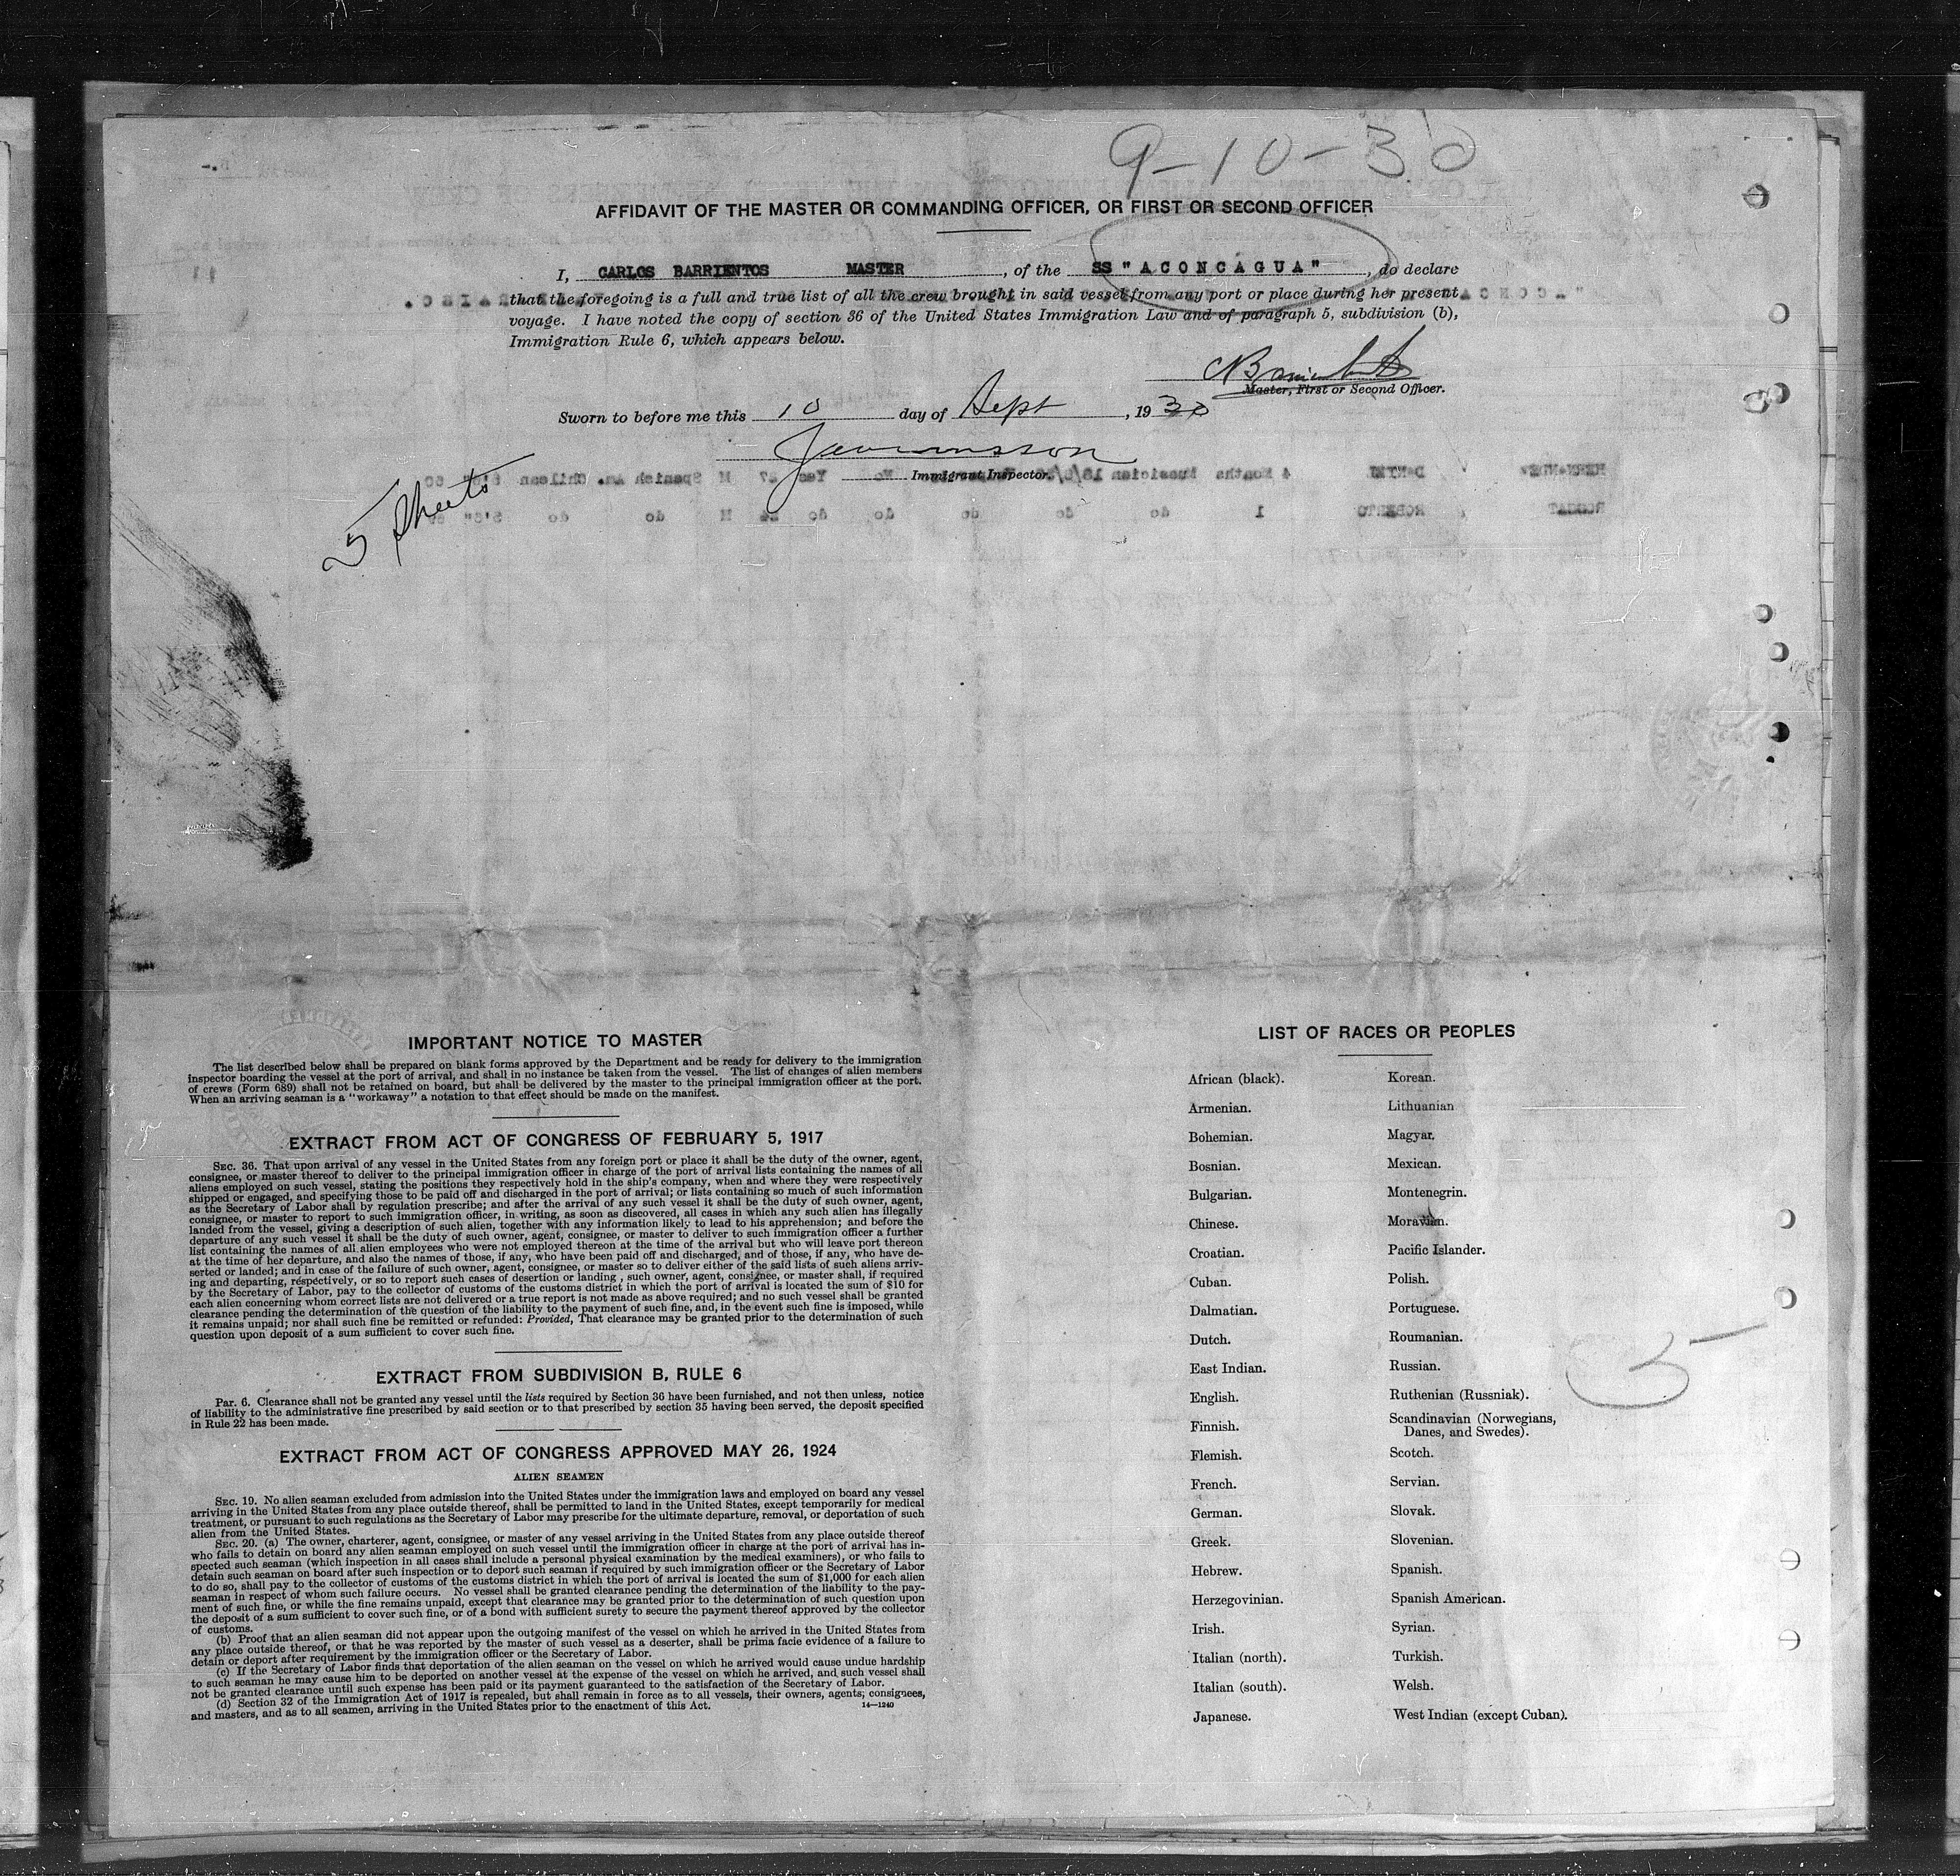 9-10-30
AFFIDAVIT OF THE MASTER OR COMMANDING OFFICER, OR FIRST OR SECOND OFFICER
I, CARLOS BARRIENTOS MASTER, of the SS "ACONCAGUA", do declare
that the foregoing is a full and true list of all the crew brought in said vessel from any port or place during her present
voyage. I have noted the copy of section 36 of the United States Immigration Law and of paragraph 5, subdivision (b),
Immigration Rule 6, which appears below.
Master, First or Second Officer.
Sworn to before me this 10 day of Sept, 1930
Immigrant Inspector.
5 Sheets
IMPORTANT NOTICE TO MASTER
The list described below shall be prepared on blank forms approved by the Department and be ready for delivery to the immigration
inspector boarding the vessel at the port of arrival, and shall in no instance be taken from the vessel. The list of changes of alien members
of crews (Form 689) shall not be retained on board, but shall be delivered by the master to the principal immigration officer at the port.
When an arriving seaman is a "workaway" a notation to that effect should be made on the manifest.
EXTRACT FROM ACT OF CONGRESS OF FEBRUARY 5, 1917
SEC. 36. That upon arrival of any vessel in the United States from any foreign port or place it shall be the duty of the owner, agent,
consignee, or master thereof to deliver to the principal immigration officer in charge of the port of arrival lists containing the names of all
aliens employed on such vessel, stating the positions they respectively hold in the ship's company, when and where they were respectively
shipped or engaged, and specifying those to be paid off and discharged in the port of arrival; or lists containing so much of such information
as the Secretary of Labor shall by regulation prescribe; and after the arrival of any such vessel it shall be the duty of such owner, agent,
consignee, or master to report to such immigration officer, in writing, as soon as discovered, all cases in which any such alien has illegally
landed from the vessel, giving a description of such alien, together with any information likely to lead to his apprehension; and before the
departure of any such vessel it shall be the duty of such owner, agent, consignee, or master to deliver to such immigration officer a further
list containing the names of all alien employees who were not employed thereon at the time of the arrival but who will leave port thereon
at the time of her departure, and also the names of those, if any, who have been paid off and discharged, and of those, if any, who have de-
serted or landed; and in case of the failure of such owner, agent, consignee, or master so to deliver either of the said lists of such aliens arriv-
ing and departing, respectively, or so to report such cases of desertion or landing , such owner, agent, consignee, or master shall, if required
by the Secretary of Labor, pay to the collector of customs of the customs district in which the port of arrival is located the sum of $10 for
each alien concerning whom correct lists are not delivered or a true report is not made as above required; and no such vessel shall be granted
clearance pending the determination of the question of the liability to the payment of such fine, and, in the event such fine is imposed, while
it remains unpaid; nor shall such fine be remitted or refunded: Provided, That clearance may be granted prior to the determination of such
question upon deposit of a sum sufficient to cover such fine.
EXTRACT FROM SUBDIVISION B, RULE 6
PAR. 6. Clearance shall not be granted any vessel until the lists required by Section 36 have been furnished, and not then unless, notice
of liability to the administrative fine prescribed by said section or to that prescribed by section 35 having been served, the deposit specified
in Rule 22 has been made.
EXTRACT FROM ACT OF CONGRESS APPROVED MAY 26, 1924
ALIEN SEAMEN
SEC. 19. No alien seaman excluded from admission into the United States under the immigration laws and employed on board any vessel
arriving in the United States from any place outside thereof, shall be permitted to land in the United States, except temporarily for medical
treatment, or pursuant to such regulations as the Secretary of Labor may prescribe for the ultimate departure, removal, or deportation of such
alien from the United States.
SEC. 20. (a) The owner, charterer, agent, consignee, or master of any vessel arriving in the United States from any place outside thereof
who fails to detain on board any alien seaman employed on such vessel until the immigration officer in charge at the port of arrival has in-
spected such seaman (which inspection in all cases shall include a personal physical examination by the medical examiners), or who fails to
detain such seaman on board after such inspection or to deport such seaman if required by such immigration officer or the Secretary of Labor
to do so, shall pay to the collector of customs of the customs district in which the port of arrival is located the sum of $1,000 for each alien
seaman in respect of whom such failure occurs. No vessel shall be granted clearance pending the determination of the liability to the pay-
ment of such fine, or while the fine remains unpaid, except that clearance may be granted prior to the determination of such question upon
the deposit of a sum sufficient to cover such fine, or of a bond with sufficient surety to secure the payment thereof approved by the collector
of customs.
(b) Proof that an alien seaman did not appear upon the outgoing manifest of the vessel on which he arrived in the United States from
any place outside thereof, or that he was reported by the master of such vessel as a deserter, shall be prima facie evidence of a failure to
detain or deport after requirement by the immigration officer or the Secretary of Labor.
(c) If the Secretary of Labor finds that deportation of the alien seaman on the vessel on which he arrived would cause undue hardship
to such seaman he may cause him to be deported on another vessel at the expense of the vessel on which he arrived, and such vessel shall
not be granted clearance until such expense has been paid or its payment guaranteed to the satisfaction of the Secretary of Labor.
(d) Section 32 of the Immigration Act of 1917 is repealed, but shall remain in force as to all vessels, their owners, agents, consignees,
and masters, and as to all seamen, arriving in the United States prior to the enactment of this Act. 14—1240
LIST OF RACES OR PEOPLES
African (black).
Armenian.
Bohemian.
Bosnian.
Bulgarian.
Chinese.
Croatian.
Cuban.
Dalmatian.
Dutch.
East Indian.
English.
Finnish.
Flemish.
French.
German.
Greek.
Hebrew.
Herzegovinian.
Irish.
Italian (north).
Italian (south).
Japanese.
Korean.
Lithuanian
Magyar.
Mexican.
Montenegrin.
Moravian.
Pacific Islander.
Polish.
Portuguese.
Roumanian.
Russian.
Ruthenian (Russniak).
Scandinavian (Norwegians,
Danes, and Swedes).
Scotch.
Servian.
Slovak.
Slovenian.
Spanish.
Spanish American.
Syrian.
Turkish.
Welsh.
West Indian (except Cuban).
5